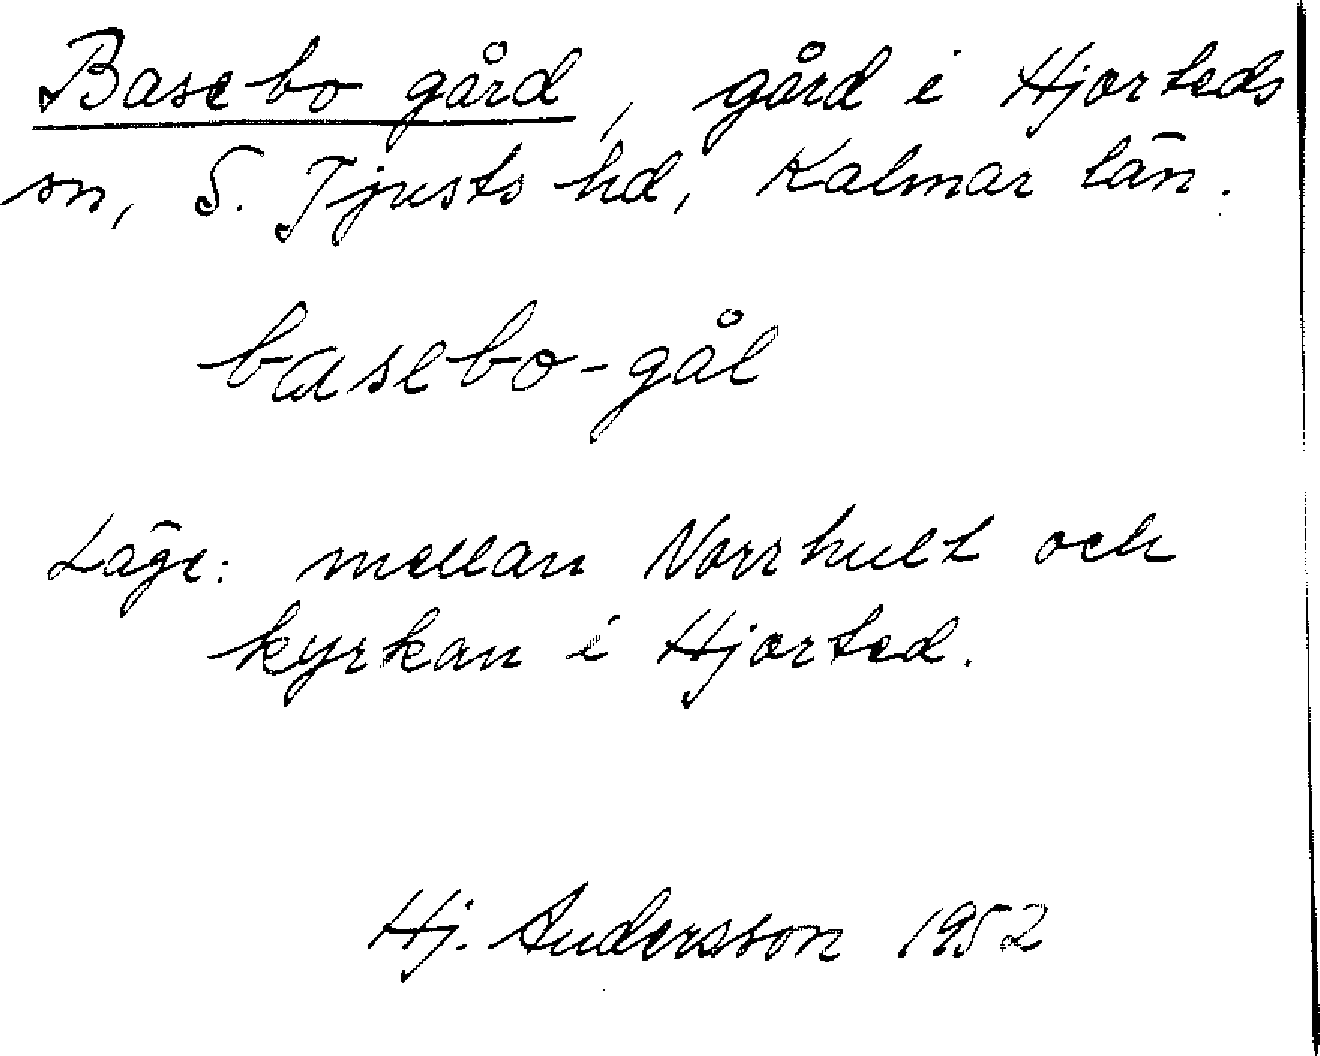 Basebo gård, gård i Hjorteds
sn, S. Tjusts hd, Kalmar län.
basebo-gål
Läge: mellan Norrhult och
kyrkan i Hjorted.
Hj. Andersson 1952